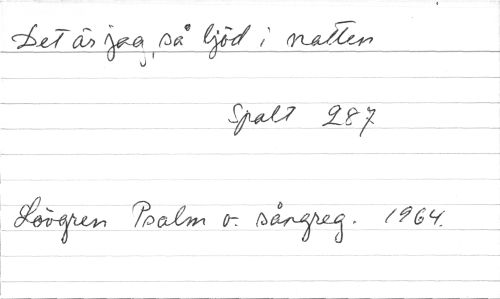 Det är jag, så ljöd i natten
Spalt 287
Lövgren Psalm o. sångreg. 1964.